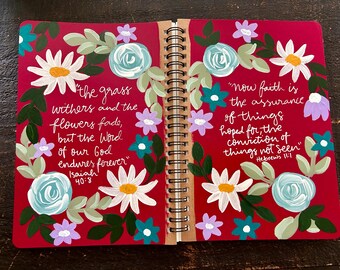 "the grass
withers and the
flowers fade,
but the Word
of our God
endures forever"
Isaiah
40:8
"Now faith is
the assurance
of things
hoped for, the
conviction of
things not seen"
Hebrews 11:1